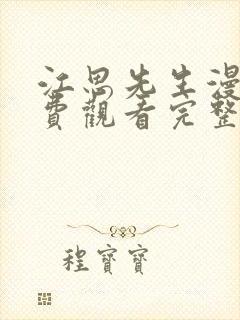 江思先生漫
費觀看完整
程寶寶